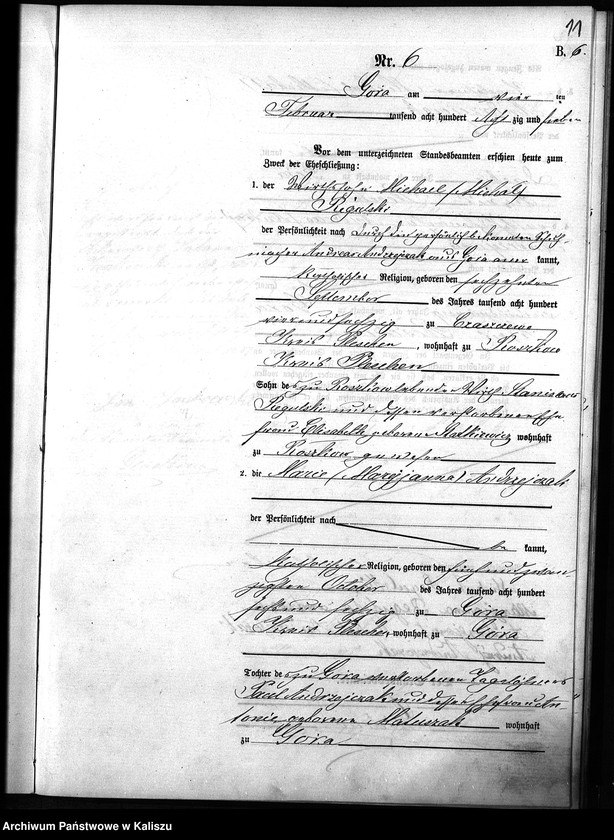 11
B. 6.
Nr. 6
Gora am vier ten
Februar tausend acht hundert Acht zig und sieben
Vor dem unterzeichneten Standesbeamten erschien heute zum
Zweck der Eheschließung:
1. der Wirthssohn Michael (Michal)
Regulski
der Persönlichkeit nach durch den persönlich bekannten
Andreas Andrzejczak aus Gora aner kannt,
katholischer Religion, geboren den sechzehnten
September des Jahres tausend acht hundert
vierundsechzig zu
Kreis Pleschen, wohnhaft zu Roszkow
Kreis Pleschen
Sohn des zu Roszkow lebenden Wirth Stanislaus
Regulski und dessen verstorbenen Ehe-
frau Elisabeth geborene wohnhaft
zu Roszkow gewesen
2. die Marie (Maryjanna) Andrzejczak
der Persönlichkeit nach
kannt,
katholischer Religion, geboren den fünfundzwan-
zigsten October des Jahres tausend acht hundert
sechsundsechzig zu Gora
Kreis Pleschen, wohnhaft zu Gora
Tochter des zu Gora verstorbenen Tagelöhners
Paul Andrzejczak und dessen Ehefrau An-
tonie geborene Matuszak wohnhaft
zu Gora
Archiwum Państwowe w Kaliszu